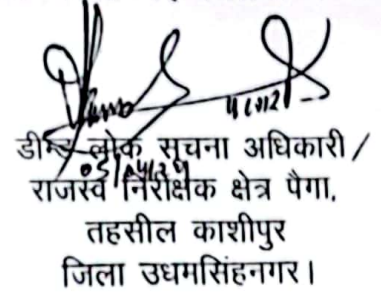 डीम्ड लोक सूचना अधिकारी /
राजस्व निरीक्षक क्षेत्र पैगा,
तहसील काशीपुर
जिला उधमसिंहनगर।